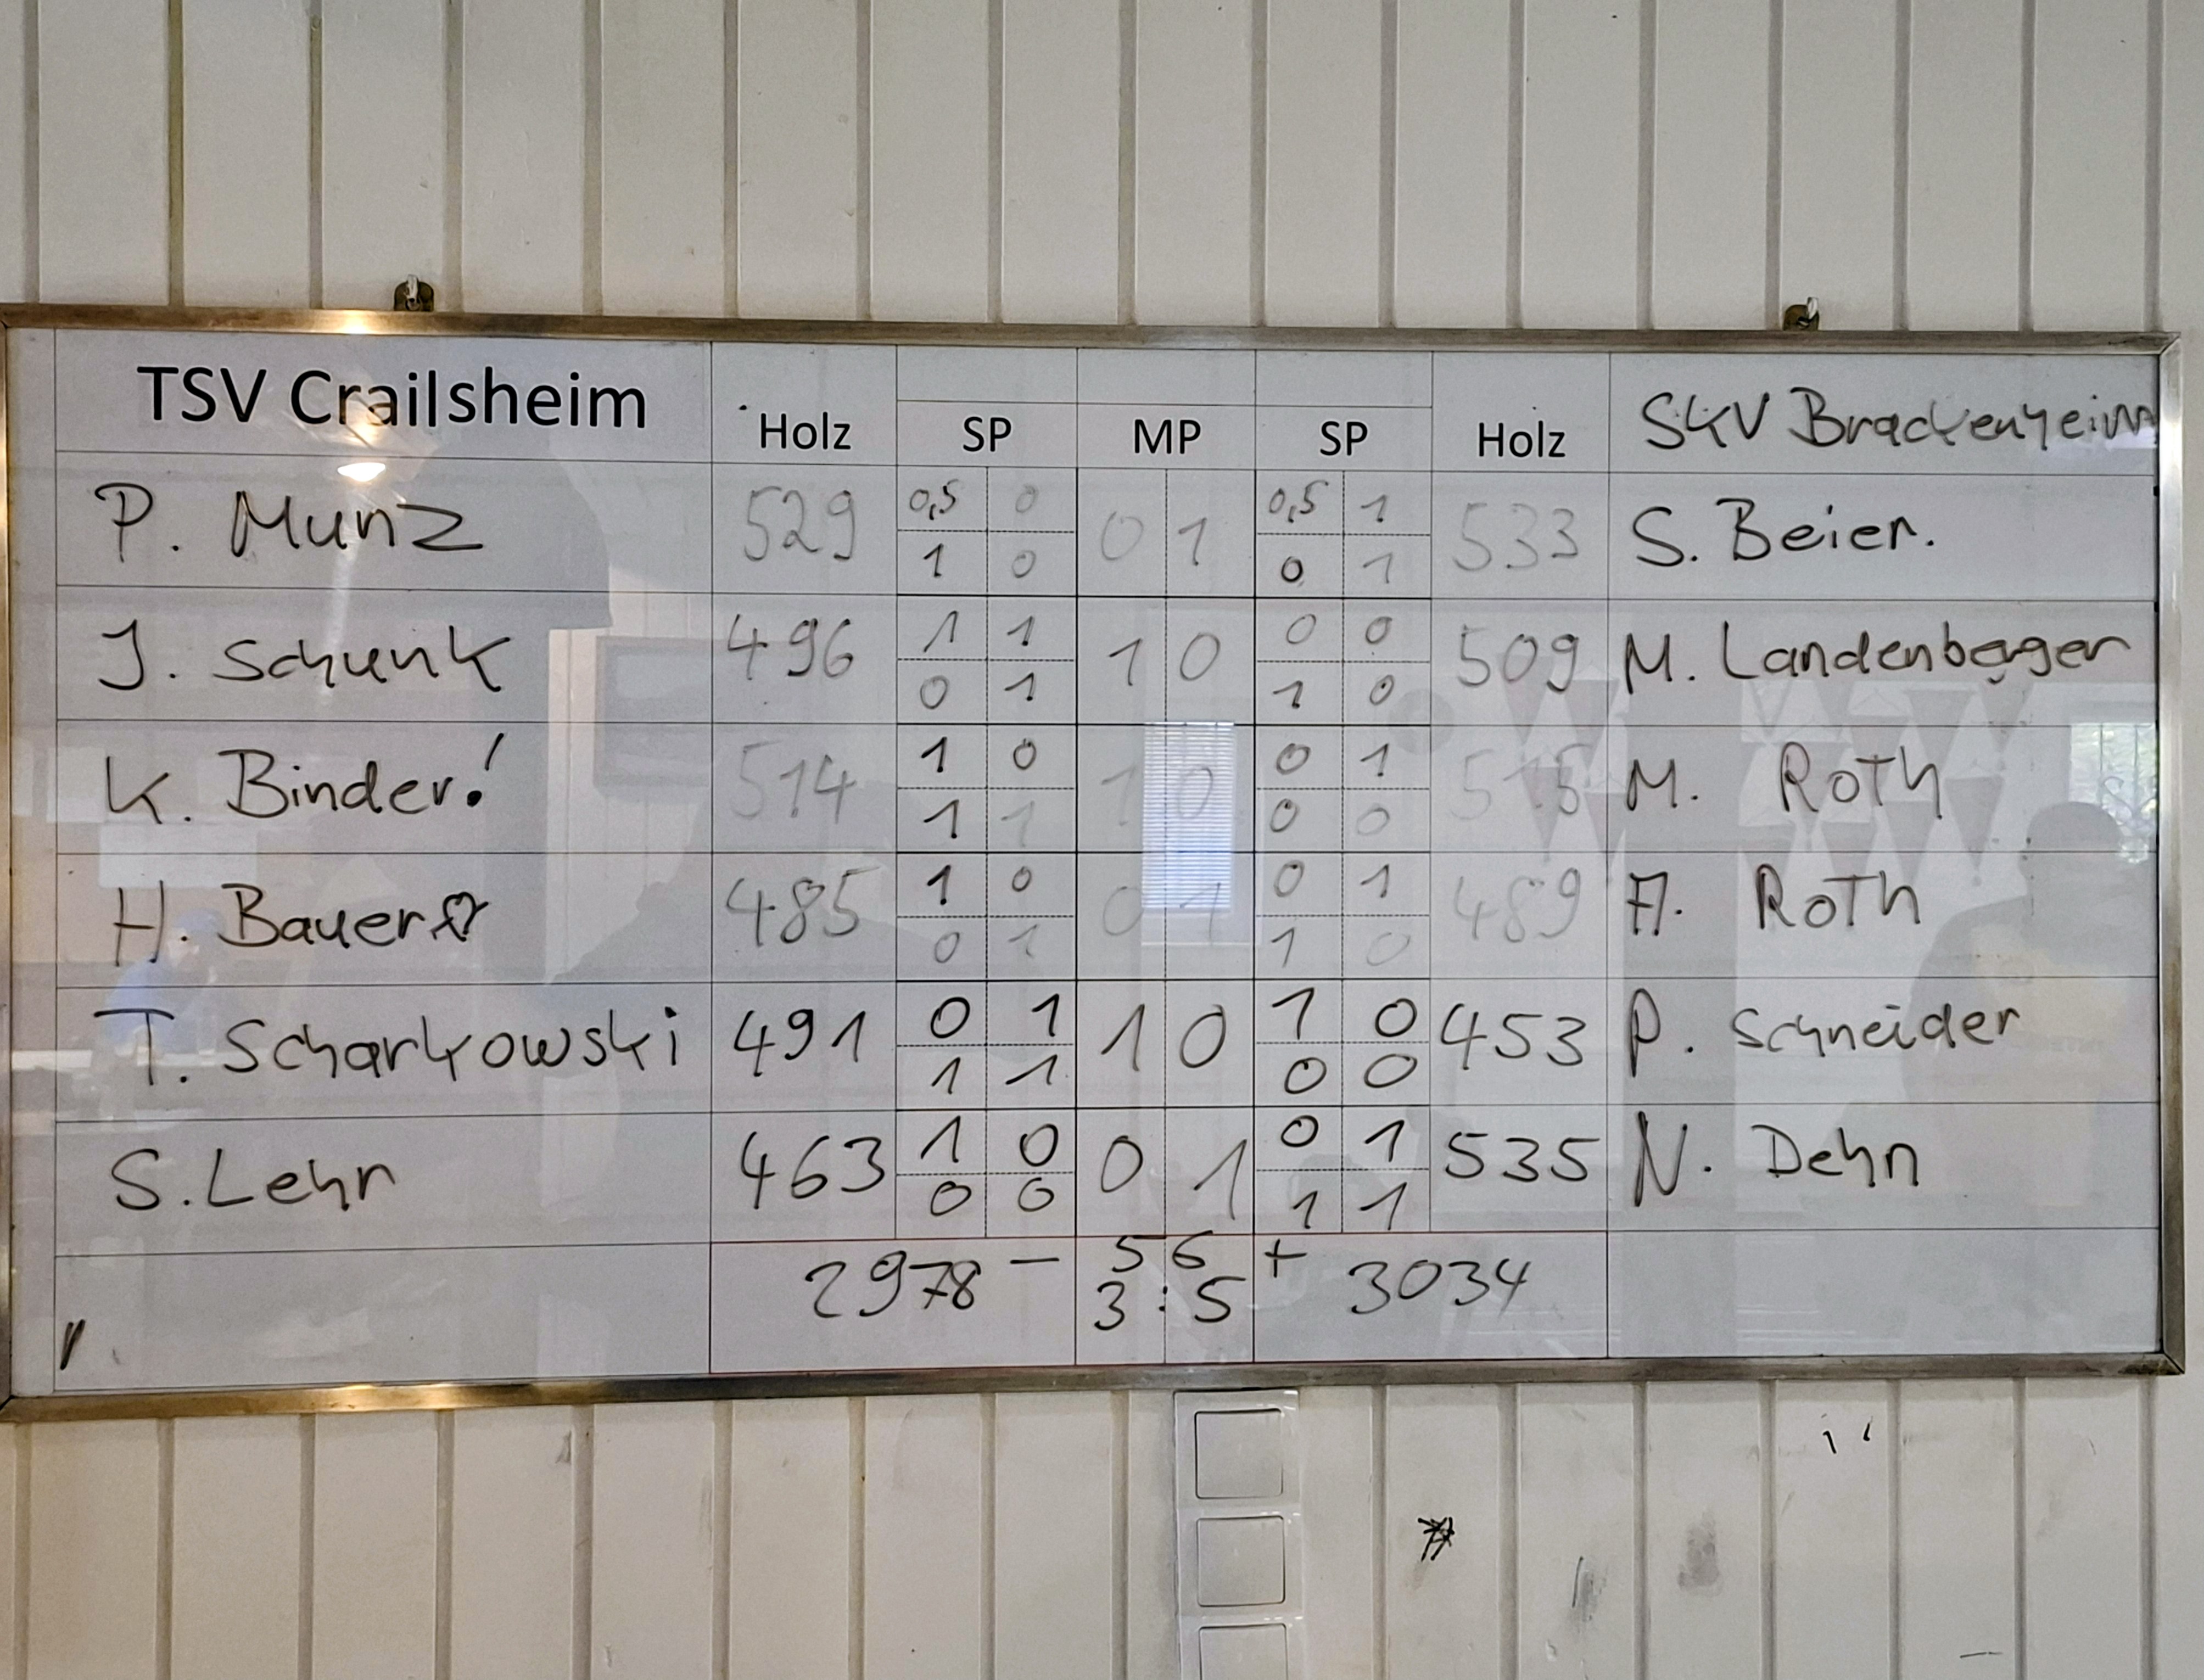 TSV Crailsheim Holz SP MP SP Holz SKV Brackenheim
P. Munz 529 0,5 0 0 1 0,5 1 533 S. Beier.
1 0 0 1
J. Schunk 496 1 1 1 0 0 0 509 M. Landenberger
0 1 1 0
K. Binder! 514 1 0 1 0 0 1 515 M. Roth
1 1 0 0
H. Bauer 485 1 0 0 1 0 1 489 A. Roth
0 1 1 0
T. Scharkowski 491 0 1 1 0 1 0 453 P. Schneider
1 1 0 0
S. Lehr 463 1 0 0 1 0 1 535 N. Dehn
0 0 1 1
2978 – 56 + 3034
3:5